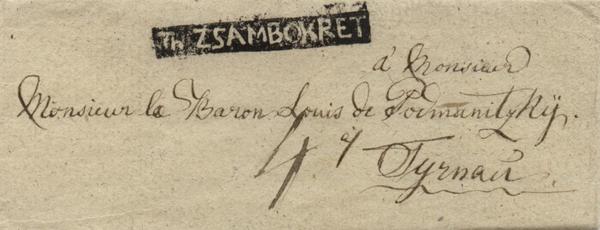 Th ZSAMBOKRET
à Monsieur
Monsieur le Baron Louis de Podmanitzkÿ.
4 à
Tyrnau